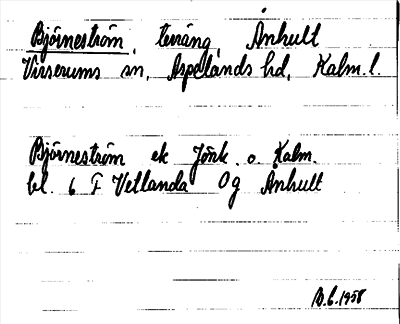 Björneström, terräng, Ånhult
Virserums sn, Aspelands hd, Kalm. l.
Björneström ek Jönk. o. Kalm.
bl. 6 F Vetlanda Og Ånhult
B.C. 1958